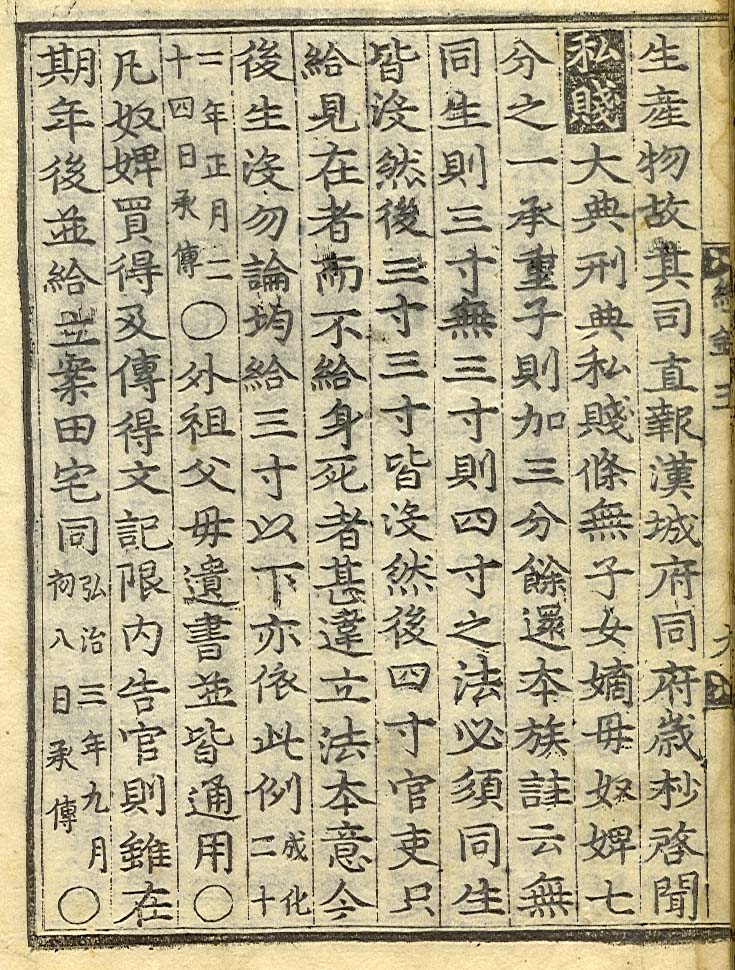 生産物故其司直報漢城府同府歳杪啓聞
私賤 大典刑典私賤條無子女嫡母奴婢七
分之一承重子則加三分餘還本族註云無
同生則三寸無三寸則四寸之法必須同生
皆没然後三寸三寸皆没然後四寸官吏只
給見在者而不給身死者甚違立法本意今
後生没勿論均給三寸以下亦依此例成化二十
二年正月二十四日承傳○外祖父毋遺書並皆通用○
凡奴婢買得及傳得文記限内告官則雖在
期年後並給立案田宅同弘治三年九月初八日承傳○